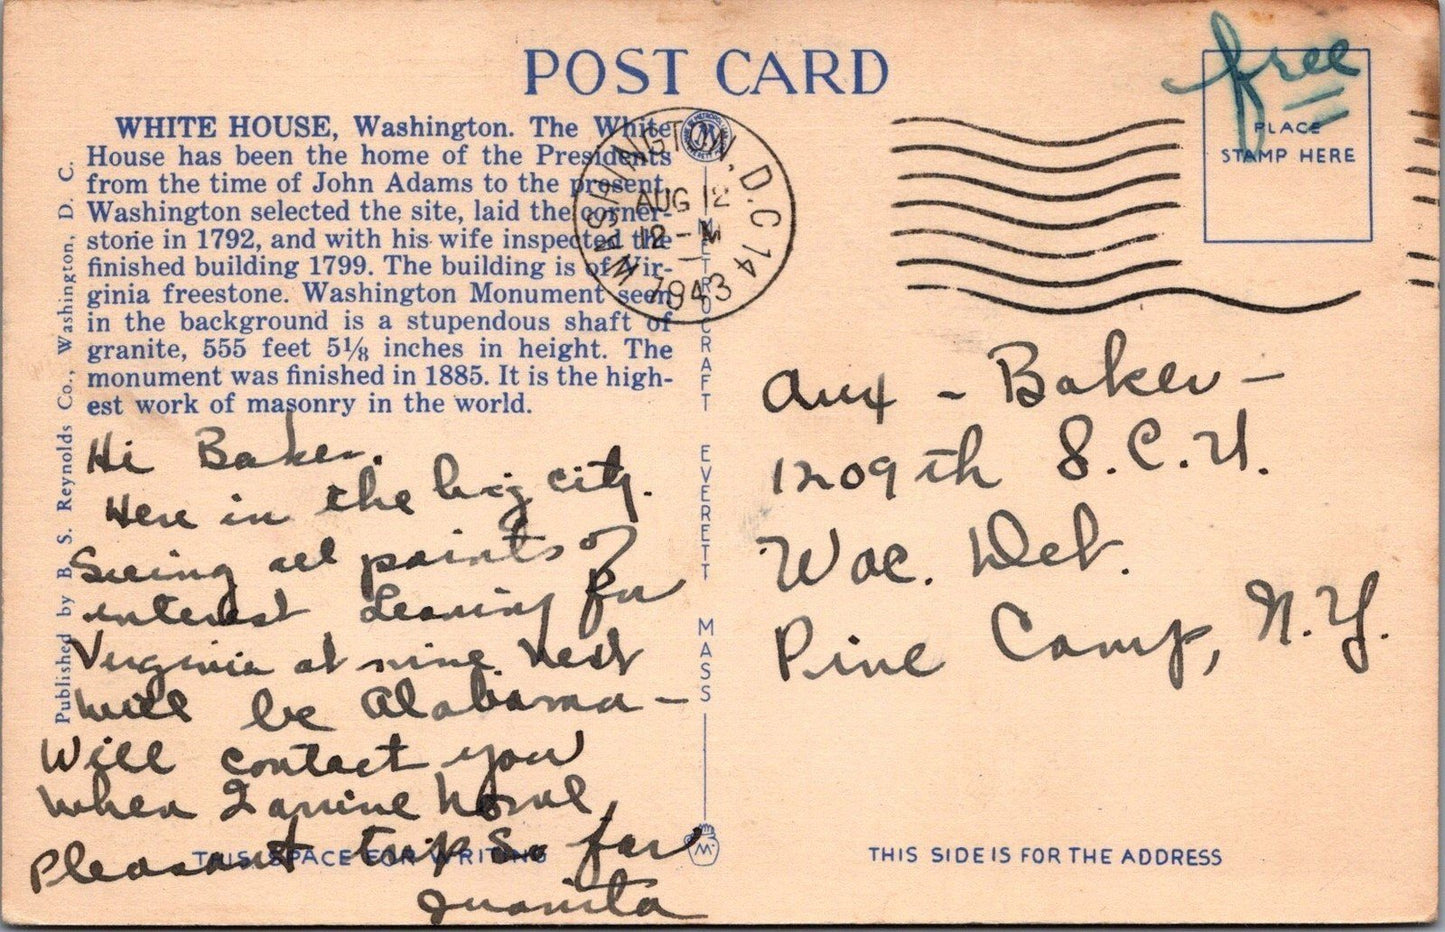 POST CARD
free
PLACE
STAMP HERE
WASHINGTON, D.C. 14
AUG 12
12 - M
1943
WHITE HOUSE, Washington. The White
House has been the home of the Presidents
from the time of John Adams to the present.
Washington selected the site, laid the corner-
stone in 1792, and with his wife inspected the
finished building 1799. The building is of Vir-
ginia freestone. Washington Monument seen
in the background is a stupendous shaft of
granite, 555 feet 5⅛ inches in height. The
monument was finished in 1885. It is the high-
est work of masonry in the world.
Published by B. S. Reynolds Co., Washington, D. C.
METROCRAFT EVERETT MASS
Hi Baker.
Here in the big city.
Seeing all points of
interest Leaving for
Virginia at nine. Next
will be Alabama —
Will contact you
when I arrive home,
Pleasant trip so far
Juanita
THIS SPACE FOR WRITING
Aux - Baker -
1209th S.C.U.
Wac. Det.
Pine Camp, N.Y.
THIS SIDE IS FOR THE ADDRESS